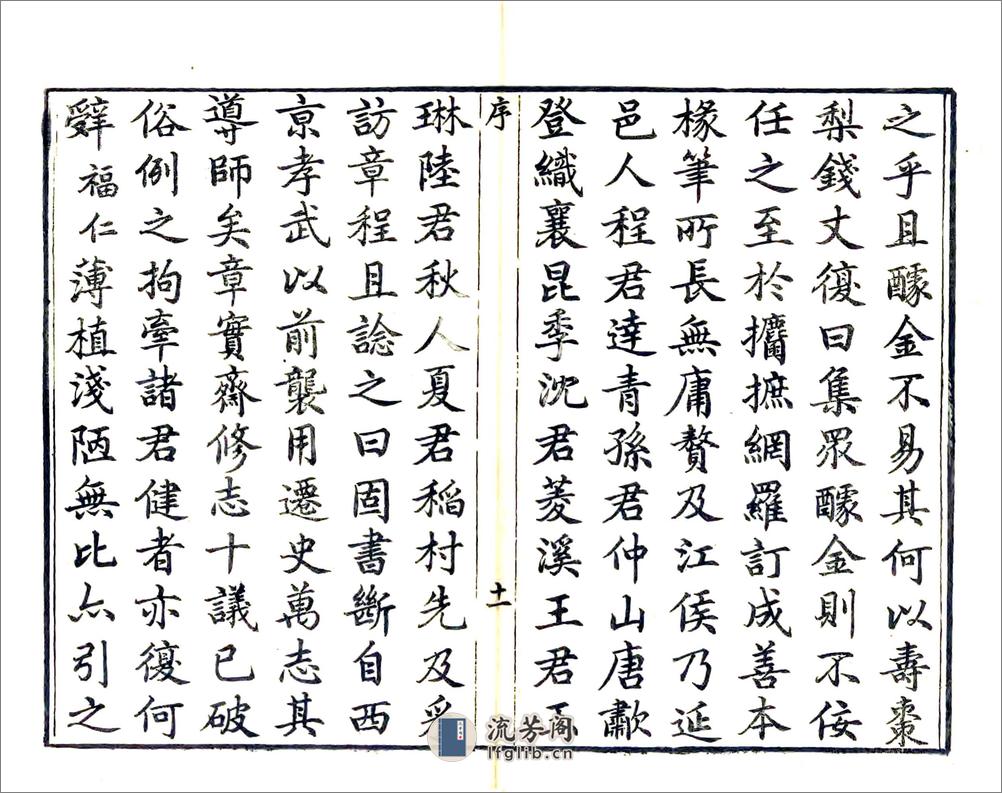 之乎且醵金不易其何以壽棗
梨錢丈復曰集眾醵金則不佞
任之至於攟摭網羅訂成善本
椽筆所長無庸贅及江侯乃延
邑人程君達青孫君仲山唐歗
登織襄昆季沈君菱溪王君
序
十一
琳陸君秋人夏君稻村先及采
訪章程且諗之曰固書斷自西
京孝武以前襲用遷史萬志其
導師矣章實齋修志十議已破
俗例之拘牽諸君健者亦復何
辭福仁薄植淺陋無比亦引之
流芳阁
lfglib.cn